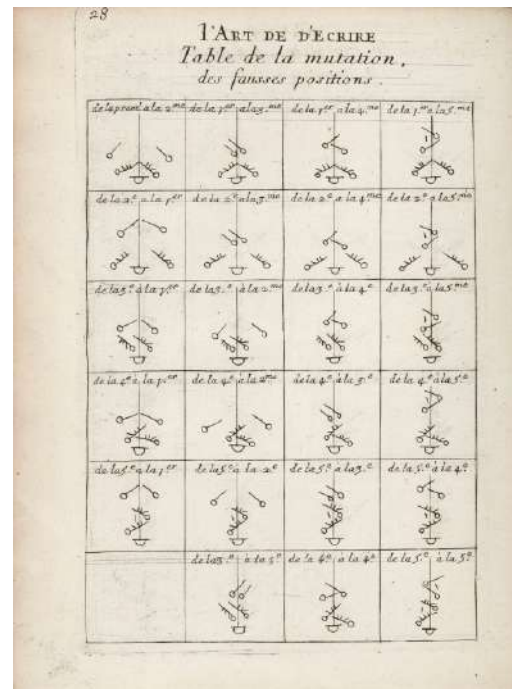 28
l'ART DE D'ECRIRE
Table de la mutation.
des fausses positions.
de la prem.e a la 2.me de la 1.er a la 3.me de la 1.er a la 4.me de la 1.er a la 5.me
de la 2.e a la 1.er de la 2.e a la 3.me de la 2.e a la 4.me de la 2.e a la 5.me
de la 3.e à la 1.er de la 3.e à la 2.me de la 3.e à la 4.e de la 3.e à la 5.me
de la 4.e à la 1.er de la 4.e à la 2.me de la 4.e à la 3.e de la 4.e à la 5.e
de la 5.e à la 1.er de la 5.e à la 2.e de la 5.e à la 3.e de la 5.e à la 4.e
de la 3.e à la 3.e de la 4.e à la 4.e de la 5.e à la 5.e